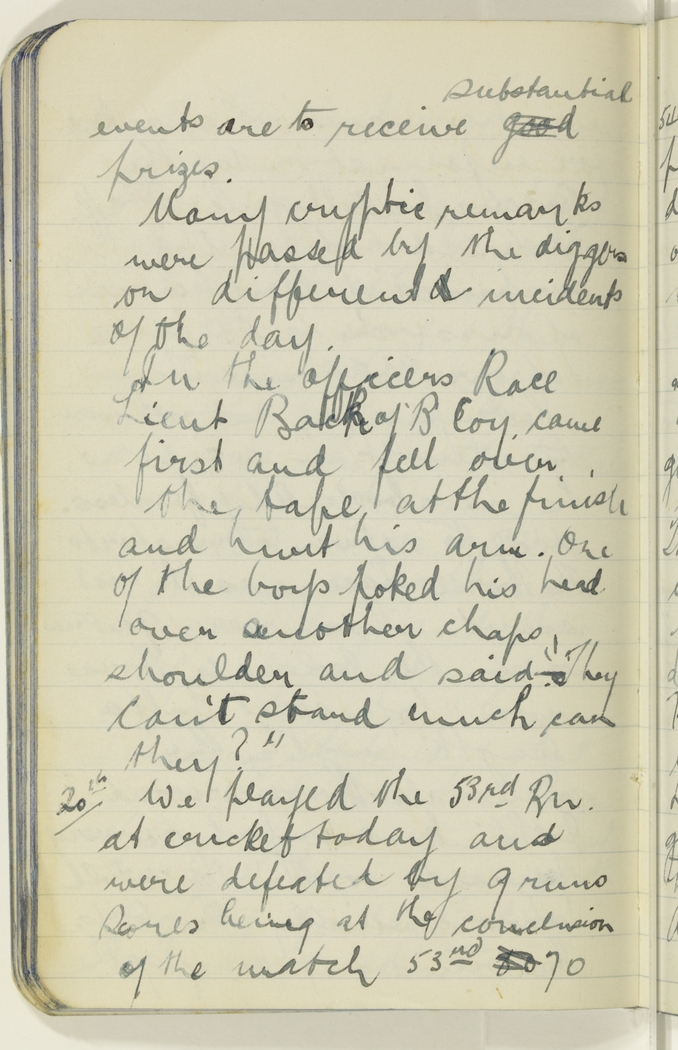 substantial
events are to receive good
prizes.
Many cryptic remarks
were passed by the diggers
on different incidents
of the day.
In the officers Race
Lieut Back of B Coy. came
first and fell over
the tape at the finish
and hurt his arm. One
of the boys poked his head
over another chaps
shoulder and said "They
can't stand much can
they?"
20th We played the 53rd Bn.
at cricket today and
were defeated by 9 runs
Scores being at the conclusion
of the match 53nd 70